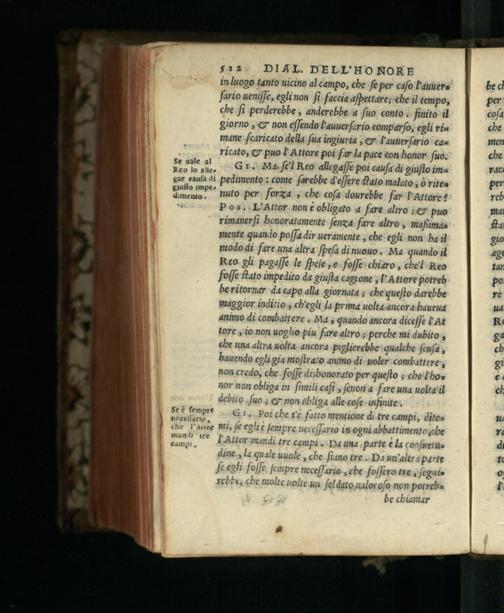 512 DIAL. DELL'HONORE
in luogo tanto uicino al campo, che se per caso l'auuer-
sario uenisse, egli non si faccia aspettare; che il tempo,
che si perderebbe, anderebbe a suo conto. finito il
giorno, & non essendo l'auuersario comparso, egli ri-
mane scaricato della sua ingiuria, & l'auuersario ca-
ricato, & puo l'Attore poi far la pace con honor suo.
Se uale al
Reo lo alle-
gar causa di
giusto impe-
dimento.
GI. Ma se'l Reo allegasse poi causa di giusto im-
pedimento: come sarebbe d'essere stato malato, ò rite-
nuto per forza, che cosa dourebbe far l'Attore?
POS. L'Attor non è obligato a fare altro: & puo
rimanersi honoratamente senza fare altro, maßima-
mente quando possa dir ueramente, che egli non ha il
modo di fare una altra spesa di nuouo. Ma quando il
Reo gli pagasse le spese, e fosse chiaro, che'l Reo
fosse stato impedito da giusta cagione, l'Attore potreb
be ritornar da capo alla giornata; che questo darebbe
maggior inditio, ch'egli la prima uolta ancora haueua
animo di combattere. Ma, quando ancora dicesse l'At
tore, io non uoglio piu fare altro; perche mi dubito,
che una altra uolta ancora piglierebbe qualche scusa,
hauendo egli gia mostrato animo di uoler combattere,
non credo, che fosse dishonorato per questo; che l'ho-
nor non obliga in simili casi, senon a fare una uolta il
debito suo; & non obliga alle cose infinite.
Se è sempre
necessario,
che l'Attor
mandi tre
campi.
GI. Poi che s'è fatto mentione di tre campi, dite-
mi, se egli è sempre necessario in ogni abbattimento, che
l'Attor mandi tre campi. Da una parte è la consuetu-
dine, la quale uuole, che siano tre. Da un'altra parte
se egli fosse sempre necessario, che fossero tre, segui-
rebbe, che molte uolte un soldato ualoroso non potreb-
be chiamar